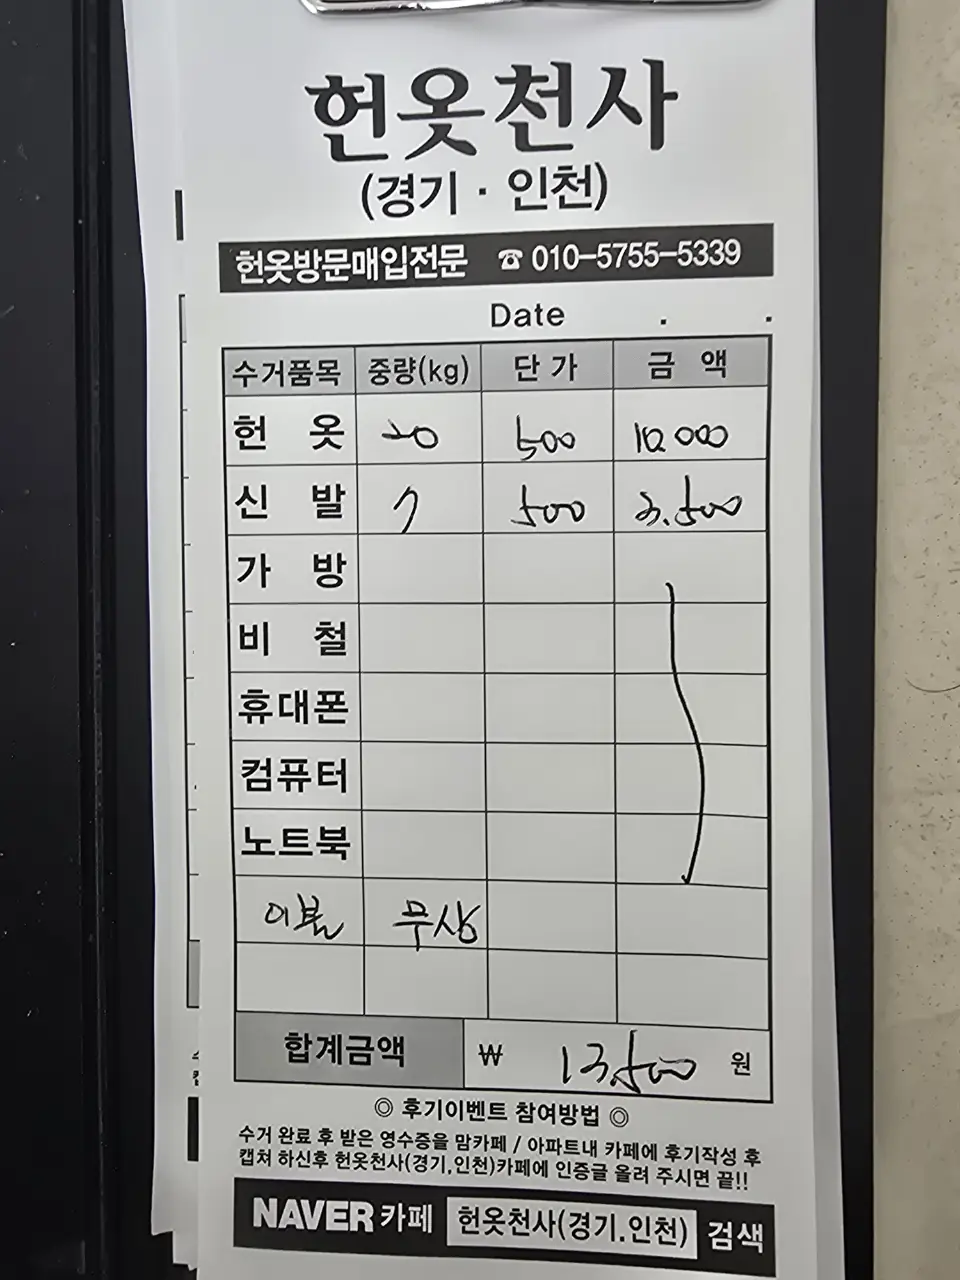 헌옷천사
(경기 · 인천)
헌옷방문매입전문 ☎ 010-5755-5339
Date . .
수거품목 중량(kg) 단 가 금 액
헌 옷 20 500 10.000
신 발 7 500 3.500
가 방
비 철
휴대폰
컴퓨터
노트북
이불 무상
합계금액 ₩ 13.500 원
◎ 후기이벤트 참여방법 ◎
수거 완료 후 받은 영수증을 맘카페 / 아파트내 카페에 후기작성 후
캡쳐 하신후 헌옷천사(경기,인천)카페에 인증글 올려 주시면 끝!!
NAVER 카페 헌옷천사(경기.인천) 검색